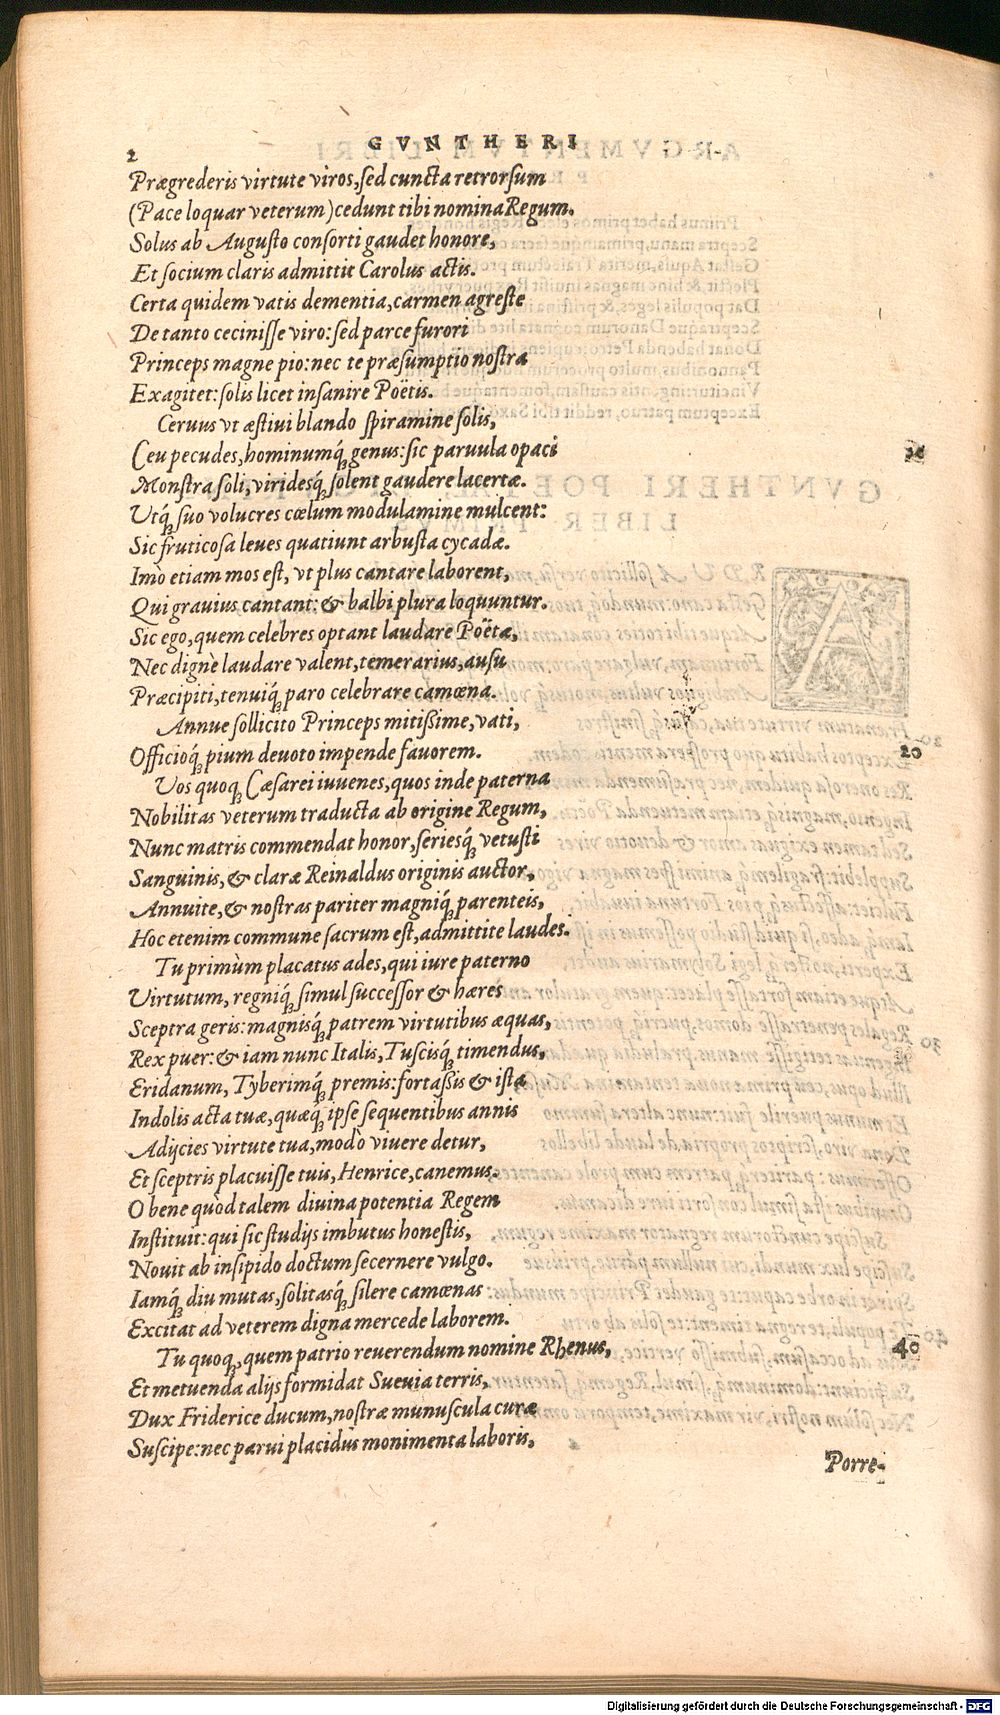 2 GVNTHERI
Prægrederis virtute viros, sed cuncta retrorsum
(Pace loquar veterum) cedunt tibi nomina Regum.
Solus ab Augusto consorti gaudet honore,
Et socium claris admittit Carolus actis.
Certa quidem vatis dementia, carmen agreste
De tanto cecinisse viro: sed parce furori
Princeps magne pio: nec te præsumptio nostra
Exagitet: solis licet insanire Poëtis.
Ceruus vt æstiui blando spiramine solis,
Ceu pecudes, hominumq́; genus: sic paruula opaci
Monstra soli, viridesq́; solent gaudere lacertæ.
Utq́; suo volucres cœlum modulamine mulcent:
Sic fruticosa leues quatiunt arbusta cycadæ.
Imò etiam mos est, vt plus cantare laborent,
Qui grauius cantant: & balbi plura loquuntur.
Sic ego, quem celebres optant laudare Poëtæ,
Nec dignè laudare valent, temerarius, ausu
Præcipiti, tenuiq́; paro celebrare camœna.
Annue sollicito Princeps mitißime, vati,
Officioq́; pium deuoto impende fauorem. 20
Uos quoq; Cæsarei iuuenes, quos inde paterna
Nobilitas veterum traducta ab origine Regum,
Nunc matris commendat honor, seriesq́; vetusti
Sanguinis, & claræ Reinaldus originis auctor,
Annuite, & nostras pariter magniq́; parenteis,
Hoc etenim commune sacrum est, admittite laudes.
Tu primùm placatus ades, qui iure paterno
Uirtutum, regniq́; simul successor & hæres
Sceptra geris: magnisq́; patrem virtutibus æquas,
Rex puer: & iam nunc Italis, Tuscisq́; timendus,
Eridanum, Tyberimq́; premis: fortaßis & ista
Indolis acta tuæ, quæq́; ipse sequentibus annis
Adijcies virtute tua, modò viuere detur,
Et sceptris placuisse tuis, Henrice, canemus.
O bene quòd talem diuina potentia Regem
Instituit: qui sic studijs imbutus honestis,
Nouit ab insipido doctum secernere vulgo.
Iamq́; diu mutas, solitasq́; silere camœnas
Excitat ad veterem digna mercede laborem.
Tu quoq;, quem patrio reuerendum nomine Rhenus, 40
Et metuenda alijs formidat Sueuia terris,
Dux Friderice ducum, nostræ munuscula curæ
Suscipe: nec parui placidus monimenta laboris,
Porre-
Digitalisierung gefördert durch die Deutsche Forschungsgemeinschaft - DFG